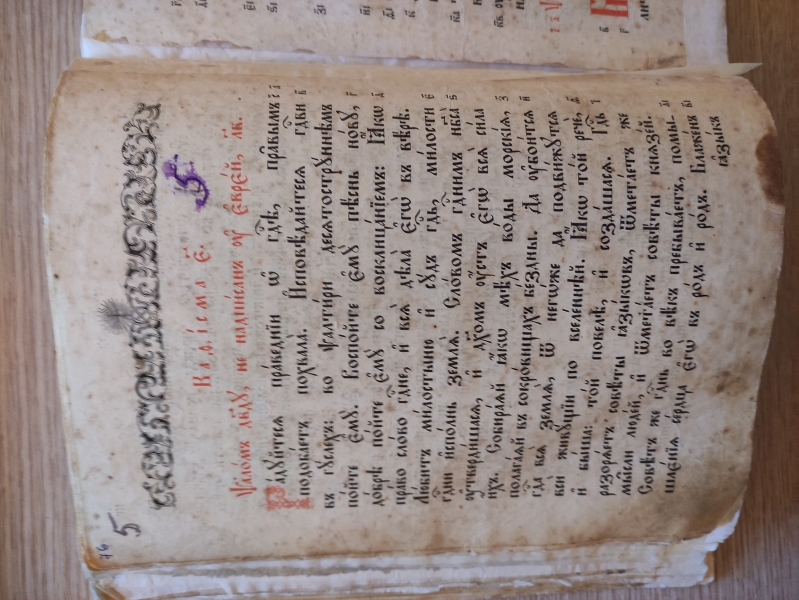 76
5
Каѳі́сма є҃.
Ѱало́мъ дв҃дꙋ, не надпи́санъ ᲂу҆ є҆врє́й, л҃в.
Ра́дꙋйтесѧ првⷣнїи ѡ҆ гдⷭ҇ѣ, пра̑вымъ
подоба́етъ похвала̀. И҆сповѣ́дайтесѧ гдⷭ҇ви
въ гꙋ́слехъ: во ѱалти́ри десѧтострꙋ́ннѣмъ
по́йте є҆мꙋ̀. Воспо́йте є҆мꙋ̀ пѣ́снь но́вꙋ,
до́брѣ по́йте є҆мꙋ̀ со восклица́нїемъ: Ꙗ҆́кѡ
пра́во сло́во гдⷭ҇не, и҆ всѧ̑ дѣла̀ є҆гѡ̀ въ вѣ́рѣ.
Лю́битъ ми́лостыню и҆ сꙋ́дъ гдⷭ҇ь, ми́лости
гдⷭ҇ни и҆спо́лнь землѧ̀. Сло́вомъ гдⷭ҇нимъ нб҃са̀
ᲂу҆тверди́шасѧ, и҆ дх҃омъ ᲂу҆́стъ є҆гѡ̀ всѧ̀ си́ла
и҆́хъ. Собира́ѧй ꙗ҆́кѡ мѣ́хъ во́ды морскі́ѧ,
полага́ѧй въ сокро́вищахъ бє́здны. Да ᲂу҆бои́тсѧ
гдⷭ҇а всѧ̀ землѧ̀, ѿ негѡ́же да подви́жꙋтсѧ
всѝ живꙋ́щїи по вселе́ннѣй. Ꙗ҆́кѡ то́й речѐ,
и҆ бы́ша: то́й повелѣ̀, и҆ созда́шасѧ. Гдⷭ҇ь
разорѧ́етъ совѣ́ты ꙗ҆зы́кѡвъ, ѿмета́етъ же
мы̑сли люді́й, и҆ ѿмета́етъ совѣ́ты кнѧзе́й.
Совѣ́тъ же гдⷭ҇нь во вѣ́къ пребыва́етъ, помы-
шлє́нїѧ се́рдца є҆гѡ̀ въ ро́дъ и҆ ро́дъ. Блаже́нъ
ꙗ҆зы́къ